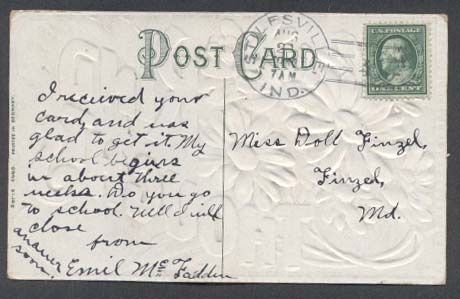 POST CARD
STILESVILLE
AUG
7 AM
IND.
U.S. POSTAGE
ONE CENT
I received your
card, and was
glad to get it. My
school begins
in about three
weeks. Do you go
to school. Well I will
close
from
answer
soon.
Emil McFadden
Miss Doll Finzel,
Finzel,
Md.
PRINTED IN GERMANY